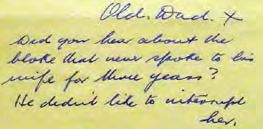 Old. Dad. X
Did you hear about the
bloke that never spoke to his
wife for three years?
He didn't like to interrupt
her.